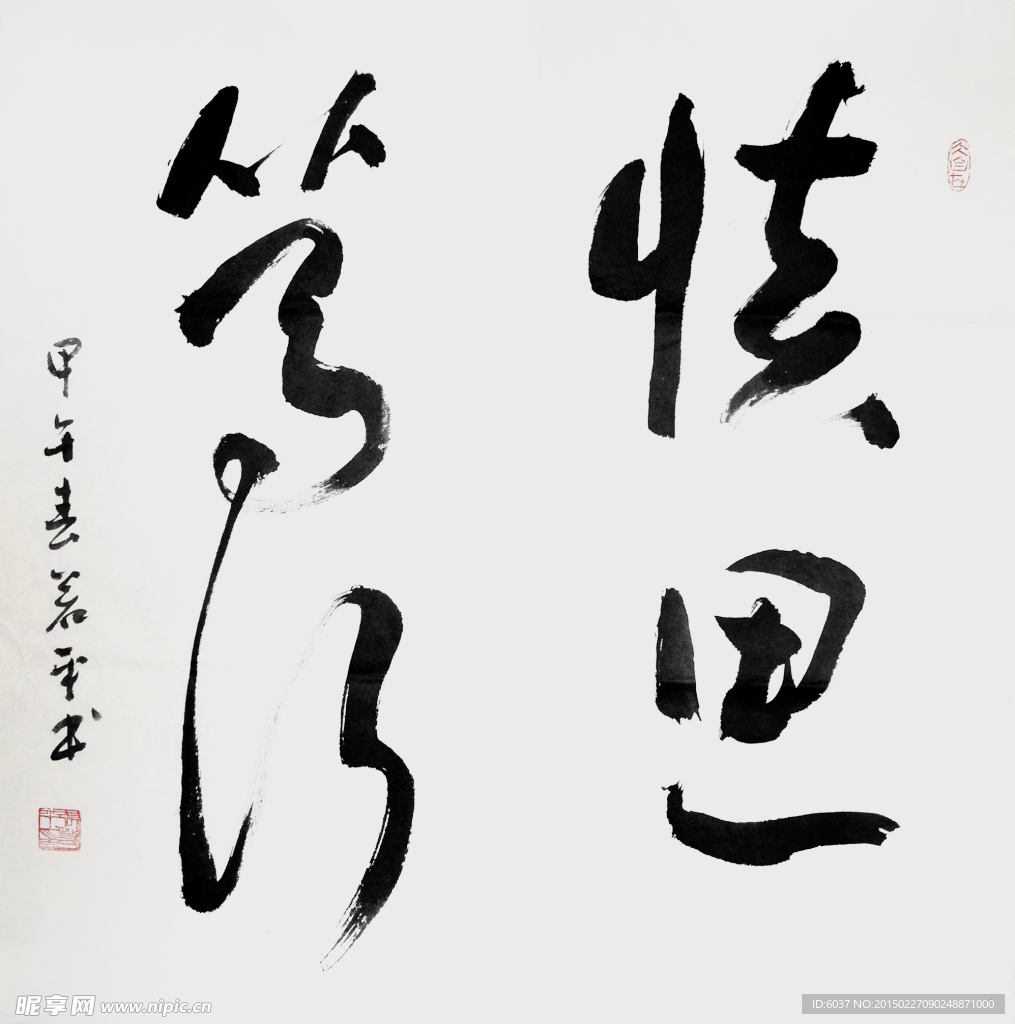 慎思
笃行
甲午春若平书
昵享网 www.nipic.cn
ID:6037 NO:20150227090248871000